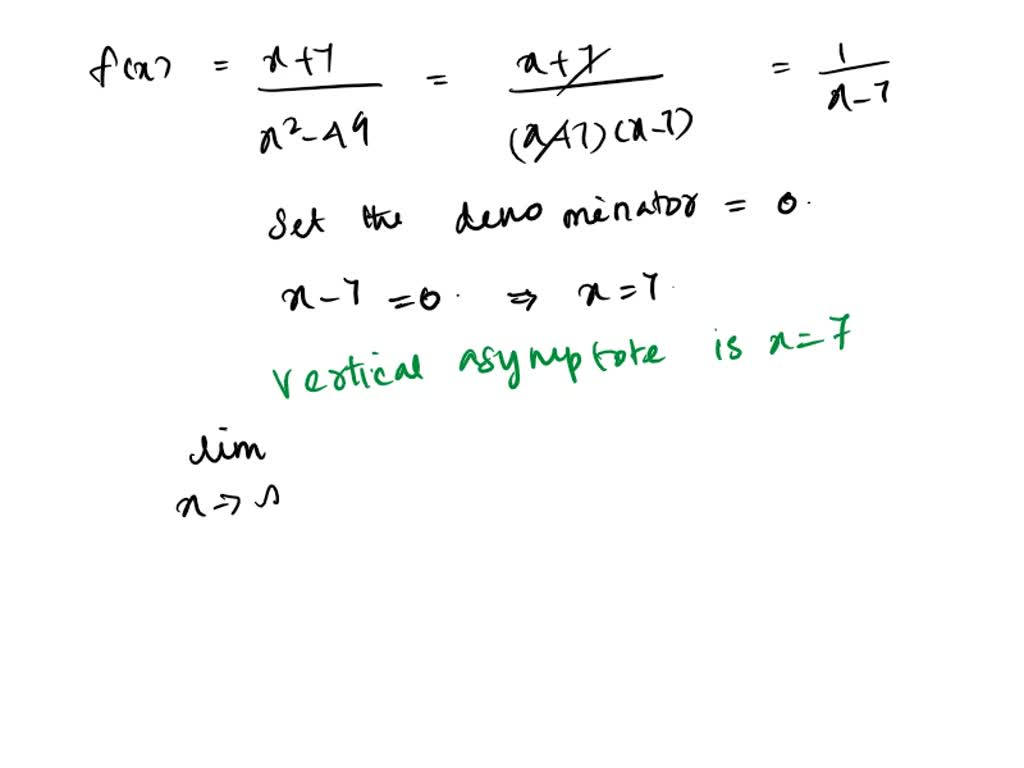 f(x) = x+7 / x²-49 = x+7 / (x+7)(x-7) = 1 / x-7
Set the denominator = 0.
x-7 = 0. ⇒ x = 7.
vertical asymptote is x = 7
lim
x →